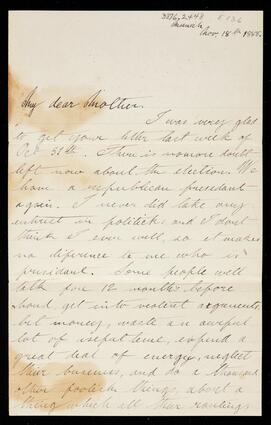 3816.2448
Munich
Nov 18th 1888.
My dear Mother.
I was very glad
to get your letter last week of
Oct 31th. There is no more doubt
left now about the election. We
have a republican presedant
again. I never did take any
entrest in politicks and I dont
think I ever well, so it makes
no diference to me who is
presidant. Some people well
talk for 12 months before
hand get into violent arguments,
bet money, waste an awful
lot of useful time, expend a
great deal of energy, neglect
their buisness, and do a thousand
other foolish things, about a
thing which all their rantings